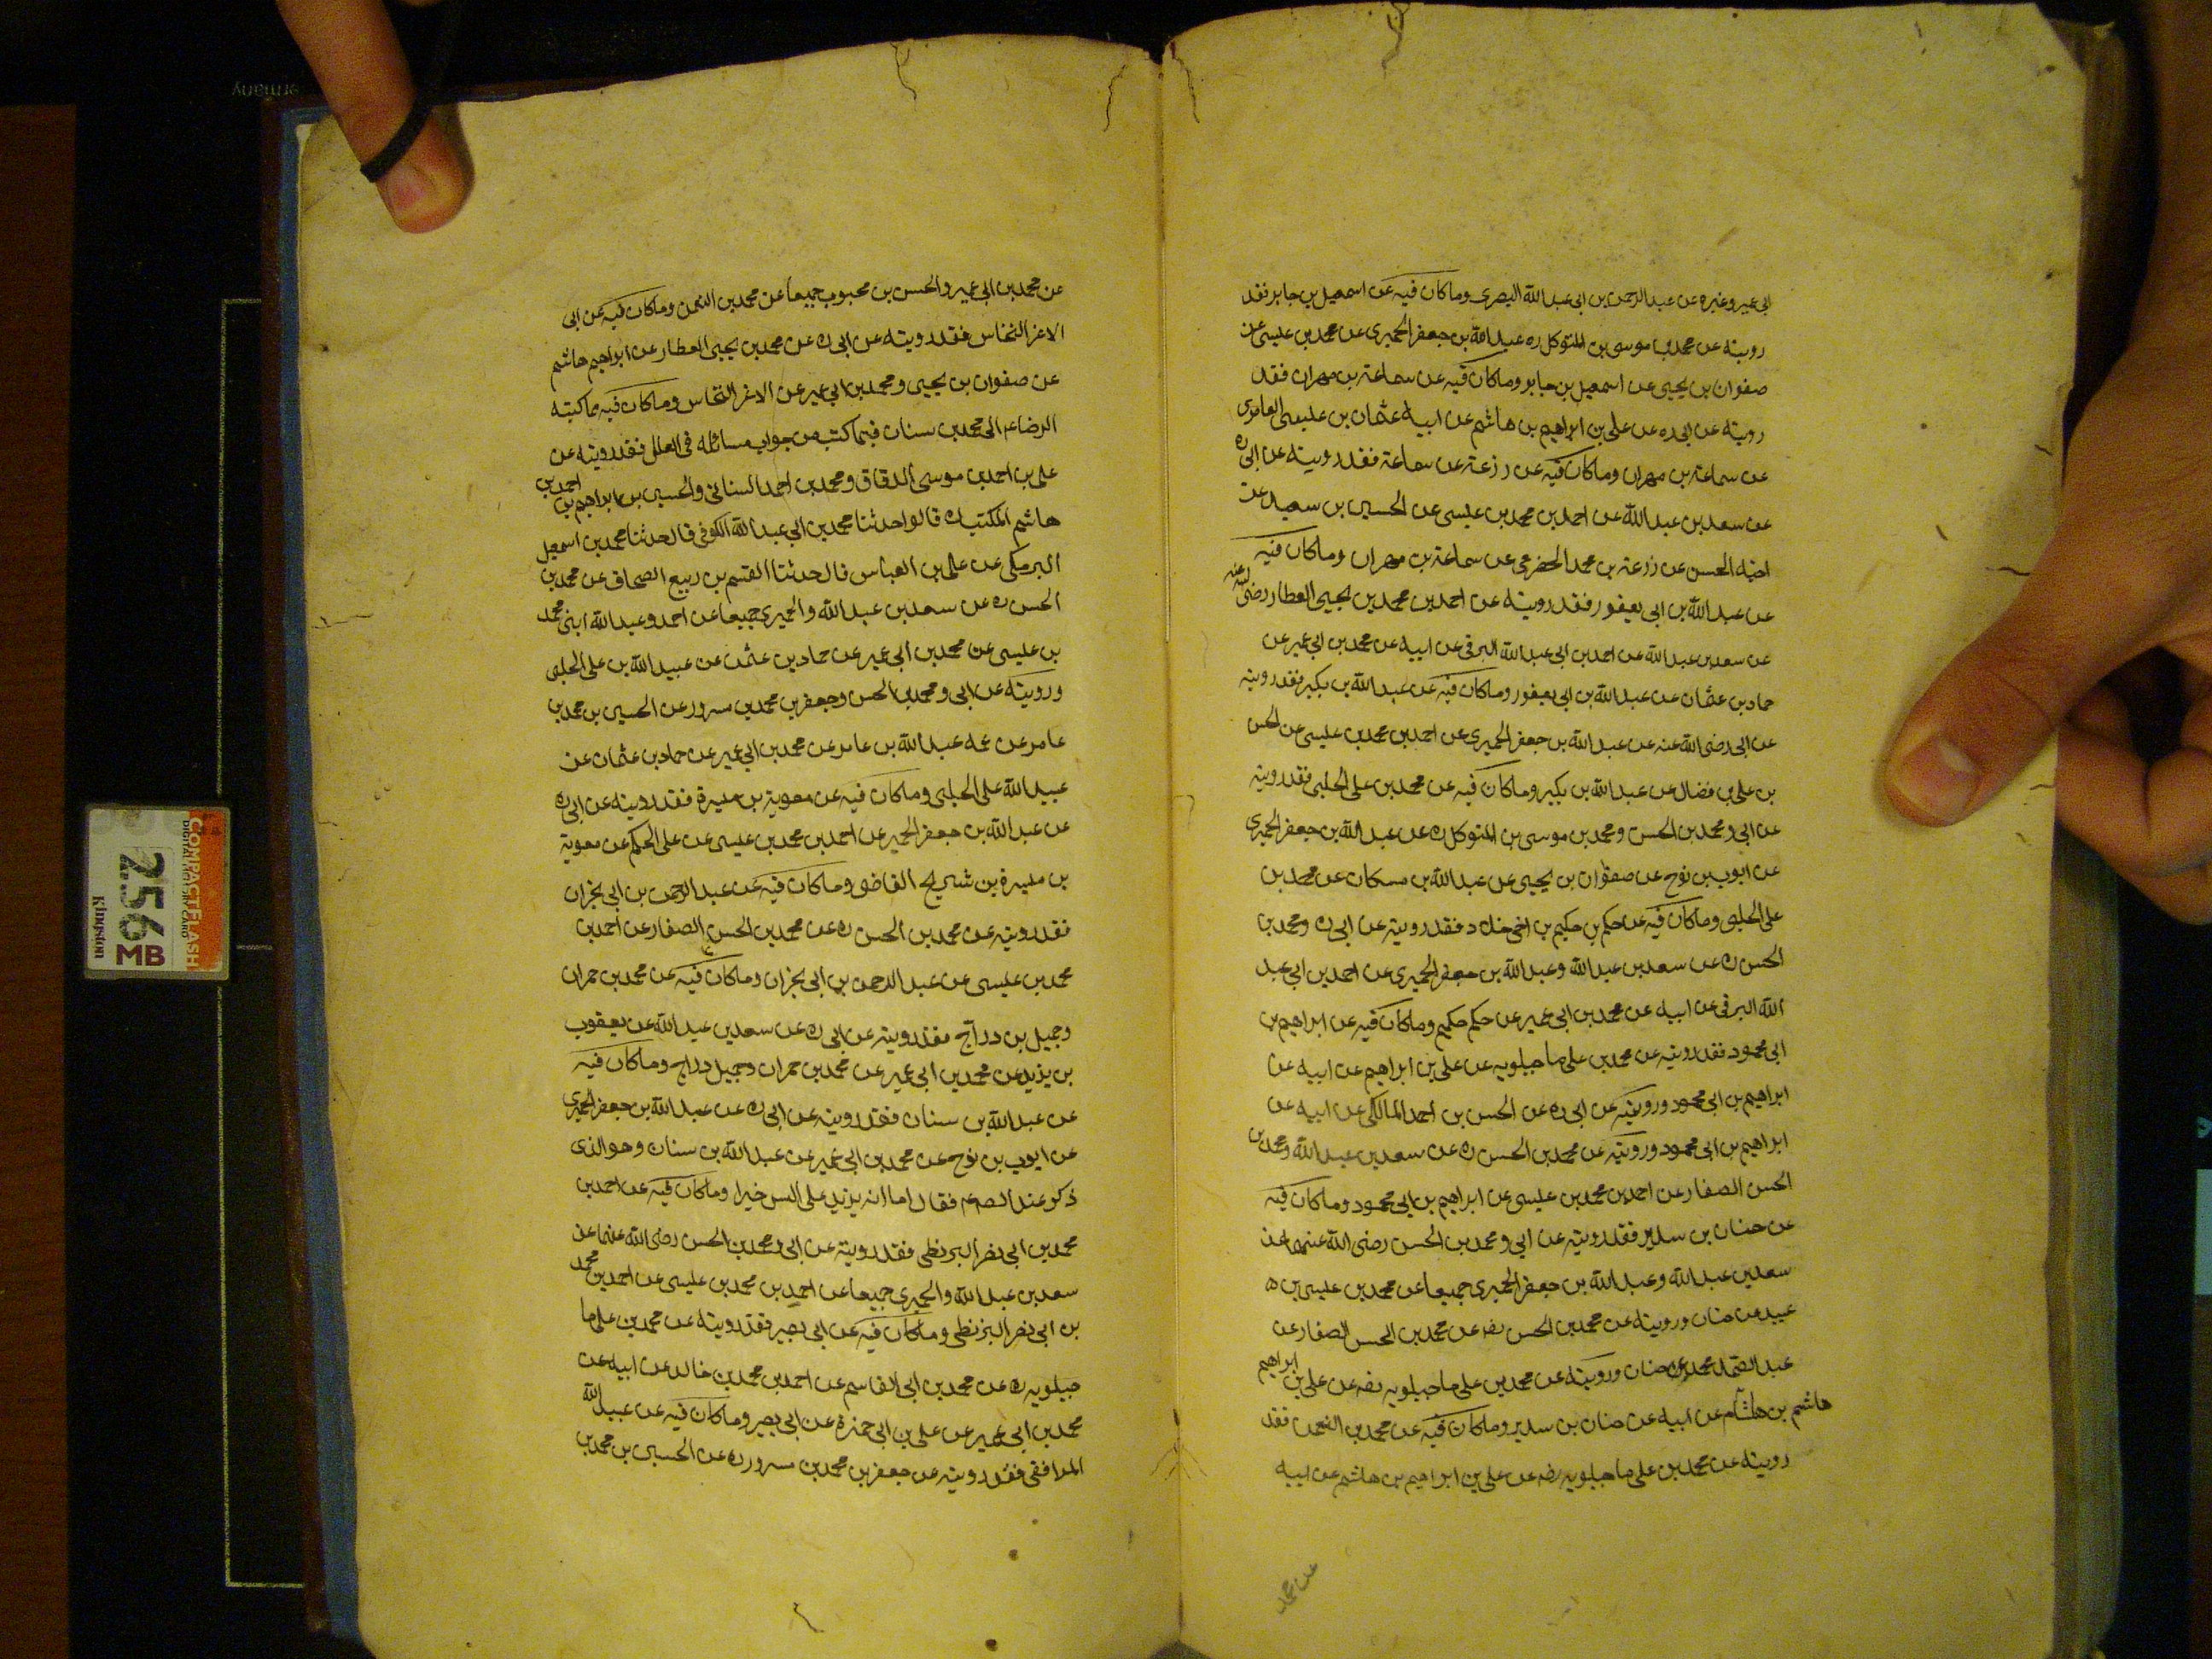 ابي عمير وغيره عن عبد الرحمن بن ابي عبد الله البصري وماكان فيه عن اسمعيل بن جابر فقد
رويته عن محمد بن موسى بن المتوكل ره عبد الله بن جعفر الحميرى عن محمد بن عليسى عن
صفوان بن يحيى عن اسمعيل بن جابر وماكان فيه عن سماعة بن مهران فقد
رويته عن ابى ره عن على بن ابراهيم بن هاشم عن ابيه عثمان بن عليسى العامرى
عن سماعة بن مهران وماكان فيه عن زرعة عن سماعة فقد رويته عن ابى ره
عن سعد بن عبد الله عن احمد بن محمد بن عيسى عن الحسين بن سعيد عن
اخيه الحسن عن زرعة بن محمد الحضرمى عن سماعة بن مهران وماكان فيه
عن عبد الله بن ابى يعفور فقد رويته عن احمد بن محمد بن يحيى العطار رضى الله عنه
عن سعد بن عبد الله عن احمد بن ابى عبد الله البرقى عن ابيه عن محمد بن ابى عمير عن
حماد بن عثمان عن عبد الله بن ابى يعفور وماكان فيه عن عبد الله بن بكير فقد رويته
عن ابى رضى الله عنه عن عبد الله بن جعفر الحميرى عن احمد بن محمد بن عليسى عن الحسن
بن على بن فضال عن عبد الله بن بكير وماكان فيه عن محمد بن على الحلبى فقد رويته
عن ابى و محمد بن الحسن و محمد بن موسى بن المتوكل ره عن عبد الله بن جعفر الحميرى
عن ايوب بن نوح عن صفوان بن يحيى عن عبد الله بن مسكان عن محمد بن
على الحلبى وماكان فيه عن حكم بن حكيم بن اخى خلاد فقد رويته عن ابى ره ومحمد بن
الحسن ره عن سعد بن عبد الله وعبد الله بن جعفر الحميرى عن احمد بن ابى عبد
الله البرقى عن ابيه عن محمد بن ابى عمير عن حكم حكيم وماكان فيه عن ابراهيم بن
ابى محمود فقد رويته عن محمد بن على ماجيلويه عن على بن ابراهيم عن ابيه عن
ابراهيم بن ابى محمود ورويته عن ابى ره عن الحسن بن احمد المالكى عن ابيه عن
ابراهيم بن ابى محمود ورويته عن محمد بن الحسن ره عن سعد بن عبد الله ومحمد بن
الحسن الصفار عن احمد بن محمد بن عليسى عن ابراهيم بن ابى محمود وماكان فيه
عن حنان بن سدير فقد رويته عن ابى و محمد بن الحسن رضى الله عنهما عن
سعد بن عبد الله وعبد الله بن جعفر الحميرى جميعا عن محمد بن عليسى بن
عبيد عن حنان ورويته عن محمد بن الحسن رضه عن محمد بن الحسن الصفار عن
عبد الصمد محمد عن حنان ورويته عن محمد بن على ماجيلويه رضه عن على بن ابراهيم
هاشم بن هاشم عن ابيه عن حنان بن سدير وماكان فيه عن محمد بن النعمن فقد
رويته عن محمد بن على ماجيلويه رضه عن على بن ابراهيم بن هاشم عن ابيه
عن محمد
عن محمد بن ابى عمير والحسن بن محبوب جميعا عن محمد بن النعمن وماكان فيه عن ابى
الاغر النخاس فقد رويته عن ابى ره عن محمد بن يحيى العطار عن ابراهيم هاشم
عن صفوان بن يحيى ومحمد بن ابى عمير عن الاغر النخاس وماكان فيه مما كتبه
الرضا ع الى محمد بن سنان فيما كتب من جواب مسائله فى العلل فقد رويته عن
على بن احمد بن موسى الدقاق ومحمد بن احمد السنانى والحسين بن ابراهيم بن احمد بن
هاشم المكتب ره قالوا حدثنا محمد بن ابى عبد الله الكوفى قال حدثنا محمد بن اسمعيل
البرمكى عن على بن العباس قال حدثنا القسم بن ربيع الصحاف عن محمد بن
الحسن ره عن سعد بن عبد الله والحميرى جميعا عن احمد وعبد الله ابنى محمد
بن عليسى عن محمد بن ابى عمير عن حماد بن عثمن عن عبيد الله بن على الحلبى
ورويته عن ابى ومحمد بن الحسن وجعفر بن محمد بن مسرور عن الحسين بن محمد بن
عامر عن عمه عبد الله بن عامر عن محمد بن ابى عمير عن حماد بن عثمان عن
عبيد الله على الحلبى وماكان فيه عن معوية بن ميسرة فقد رويته عن ابى ره
عن عبد الله بن جعفر الحميرى عن احمد بن محمد بن عيسى عن على الحكم عن معوية
بن ميسرة بن شريح القاضى وماكان فيه عن عبد الرحمن بن ابى نجران
فقد رويته عن محمد بن الحسن ره عن محمد بن الحسن الصفار عن احمد بن
محمد بن عليسى عن عبد الرحمن بن ابى نجران وماكان فيه عن محمد بن حمران
وجميل بن دراج فقد رويته عن ابى ره عن سعد بن عبد الله عن يعقوب
بن يزيد عن محمد بن ابى عمير عن محمد بن حمران وجميل دراج وماكان فيه
عن عبد الله بن سنان فقد رويته عن ابى ره عن عبد الله بن جعفر الحميرى
عن ايوب بن نوح عن محمد بن ابى عمير عن عبد الله بن سنان وهو الذى
ذكر عند الصم فقال اما انه يزيد على السن خيرا وماكان فيه عن احمد بن
محمد بن ابى نصر البزنطى فقد رويته عن ابى ومحمد بن الحسن رضى الله عنهما عن
سعد بن عبد الله والحميرى جميعا عن احمد بن محمد بن عليسى عن احمد بن محمد
بن ابى نصر البزنطى وماكان فيه عن ابى بصير فقد رويته عن محمد بن على ما
جيلويه ره عن محمد بن ابى القاسم عن احمد بن محمد بن خالد عن ابيه عن
محمد بن ابى عمير عن على بن ابى حمزة عن ابى بصير وماكان فيه عن عبيد الله
المرافقى فقد رويته عن جعفر بن محمد بن مسرور ره عن الحسين بن محمد بن
COMPACTFLASH
256
MB
Kingston